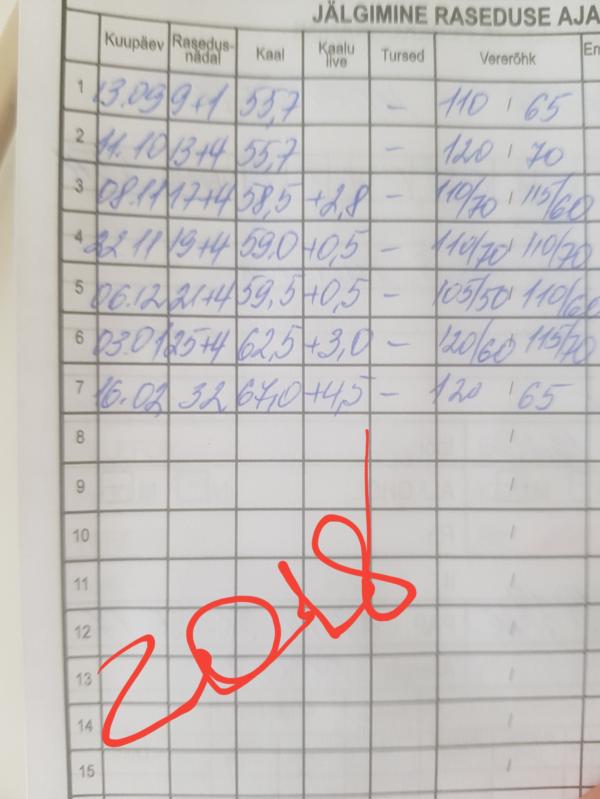 JÄLGIMINE RASEDUSE AJA
Kuupäev Rasedus-nädal Kaal Kaalu iive Tursed Vererõhk
1 13.09 9+1 55,7 – 110 / 65
2 11.10 13+4 55,7 – 120 / 70
3 08.11 17+4 58,5 +2,8 – 110/70 115/60
4 22.11 19+4 59,0 +0,5 – 110/70 110/70
5 06.12 21+4 59,5 +0,5 – 105/50 110/60
6 03.01 25+4 62,5 +3,0 – 120/60 115/70
7 16.02 32 67,0 +4,5 – 120 / 65
8 /
9 /
10 /
11 /
12 /
13 /
14 /
15 /
2018